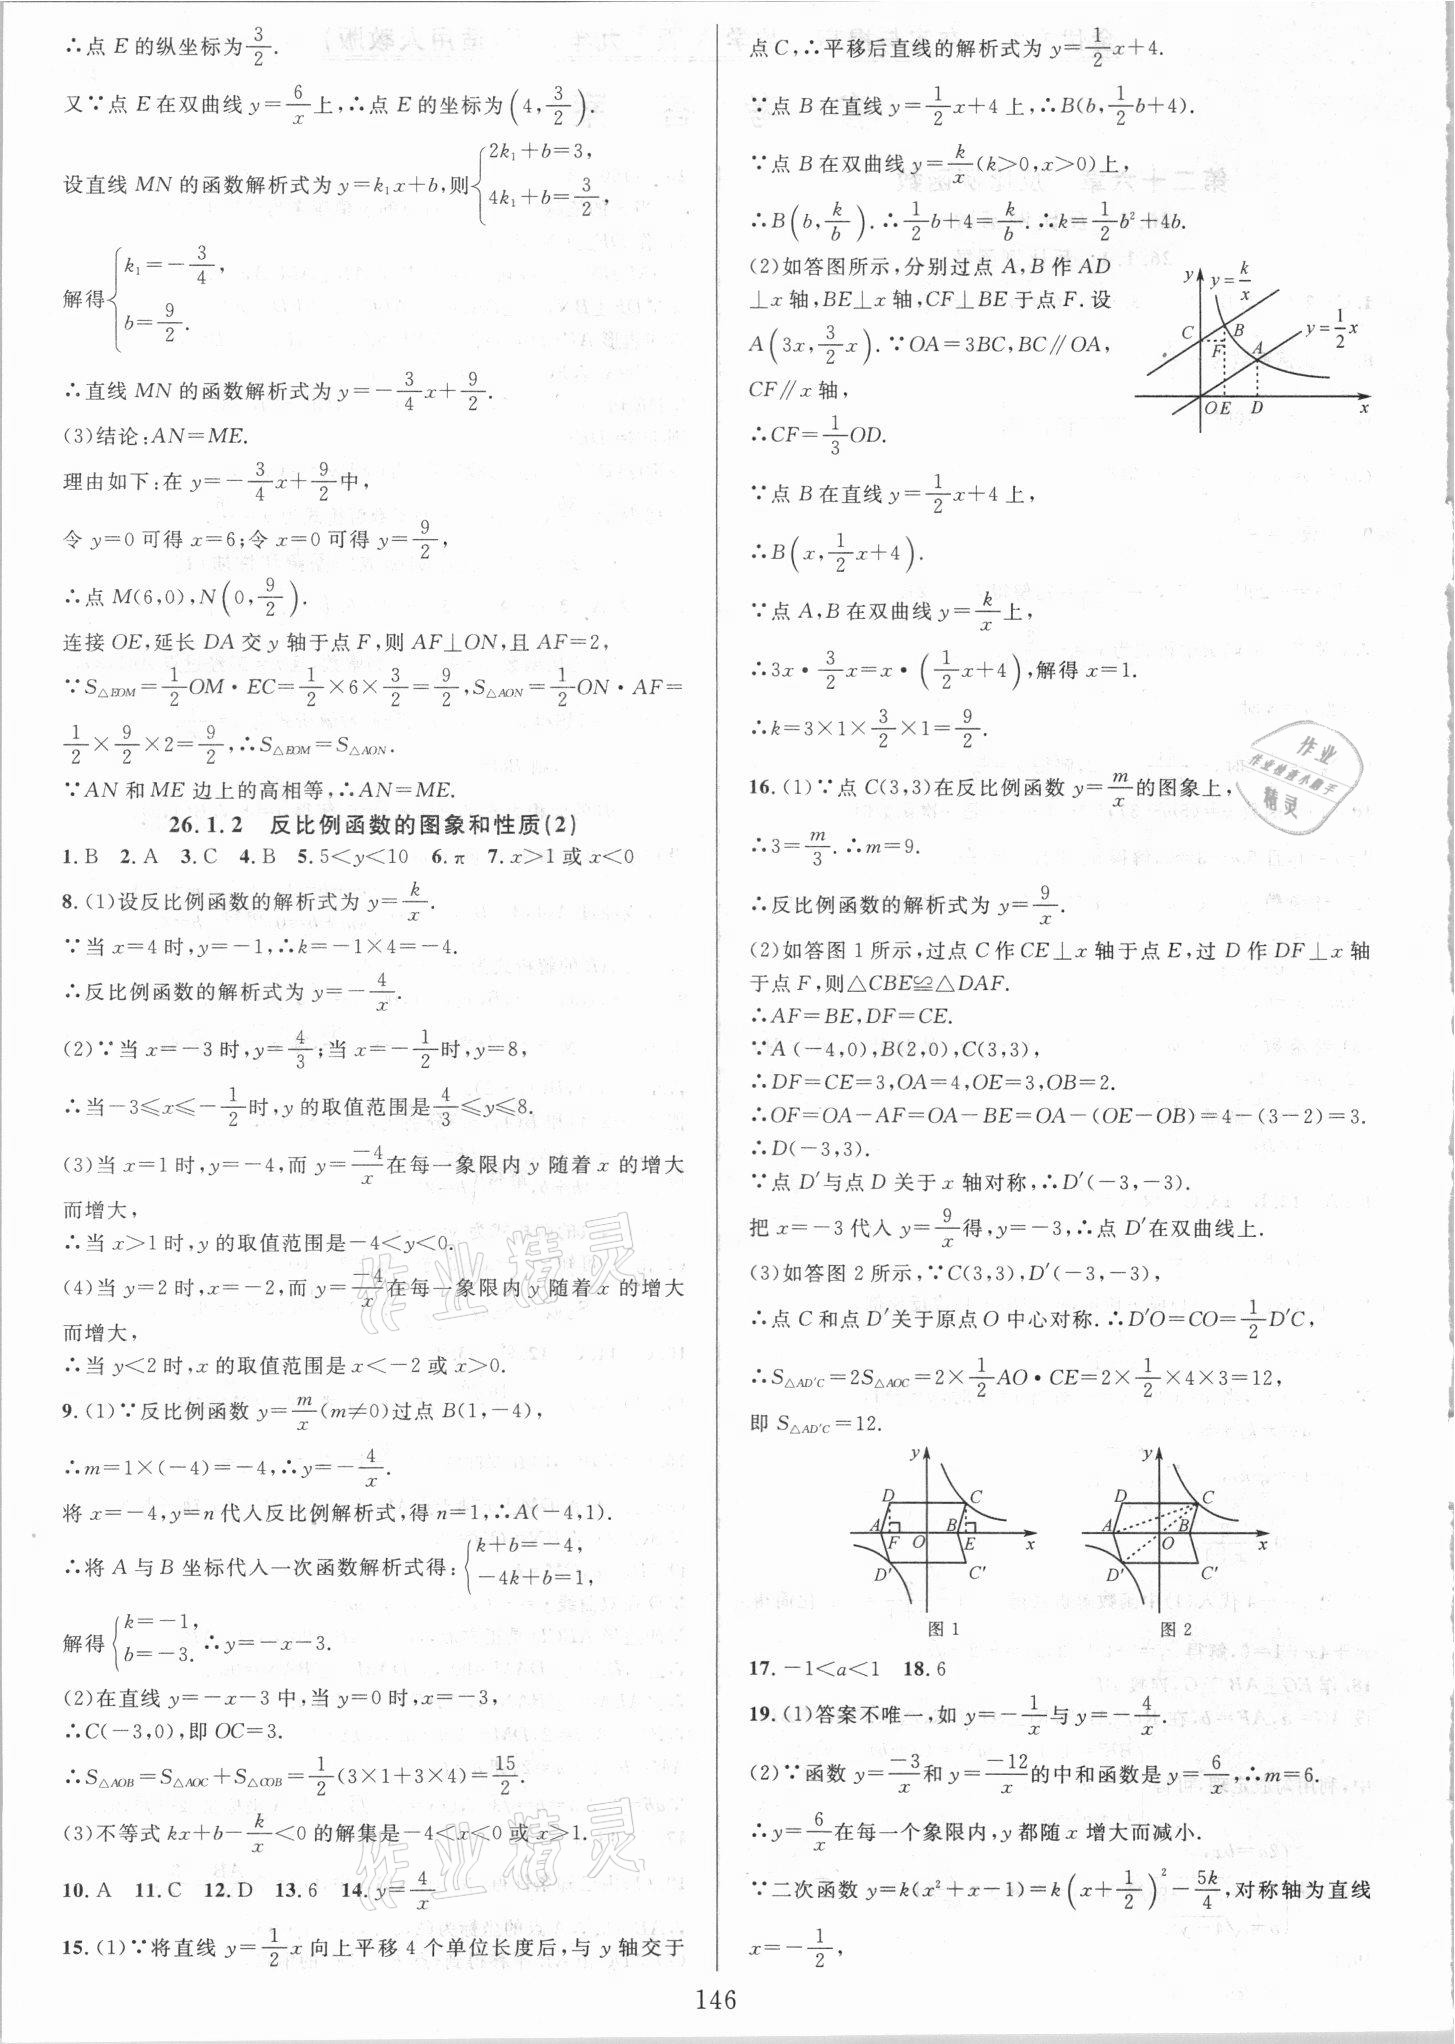 ∴点 E 的纵坐标为3/2.
又∵点 E 在双曲线 y=6/x上,∴点 E 的坐标为(4,3/2).
设直线 MN 的函数解析式为 y=k₁x+b,则{2k₁+b=3, 4k₁+b=3/2,
解得{k₁=-3/4, b=9/2.
∴直线 MN 的函数解析式为 y=-3/4x+9/2.
(3)结论:AN=ME.
理由如下:在 y=-3/4x+9/2中,
令 y=0 可得 x=6;令 x=0 可得 y=9/2,
∴点 M(6,0),N(0,9/2).
连接 OE,延长 DA 交 y 轴于点 F,则 AF⊥ON,且 AF=2,
∵S△EOM=1/2OM·EC=1/2×6×3/2=9/2,S△AON=1/2ON·AF=
1/2×9/2×2=9/2,∴S△EOM=S△AON.
∵AN 和 ME 边上的高相等,∴AN=ME.
26.1.2 反比例函数的图象和性质(2)
1.B 2.A 3.C 4.B 5.5<y<10 6.π 7.x>1 或 x<0
8.(1)设反比例函数的解析式为 y=k/x.
∵当 x=4 时,y=-1,∴k=-1×4=-4.
∴反比例函数的解析式为 y=-4/x.
(2)∵当 x=-3 时,y=4/3;当 x=-1/2时,y=8,
∴当-3≤x≤-1/2时,y 的取值范围是4/3≤y≤8.
(3)当 x=1 时,y=-4,而 y=-4/x在每一象限内 y 随着 x 的增大
而增大,
∴当 x>1 时,y 的取值范围是-4<y<0.
(4)当 y=2 时,x=-2,而 y=-4/x在每一象限内 y 随着 x 的增大
而增大,
∴当 y<2 时,x 的取值范围是 x<-2 或 x>0.
9.(1)∵反比例函数 y=m/x(m≠0)过点 B(1,-4),
∴m=1×(-4)=-4,∴y=-4/x.
将 x=-4,y=n 代入反比例解析式,得 n=1,∴A(-4,1).
∴将 A 与 B 坐标代入一次函数解析式得:{k+b=-4, -4k+b=1,
解得{k=-1, b=-3.∴y=-x-3.
(2)在直线 y=-x-3 中,当 y=0 时,x=-3,
∴C(-3,0),即 OC=3.
∴S△AOB=S△AOC+S△COB=1/2(3×1+3×4)=15/2.
(3)不等式 kx+b-k/x<0 的解集是-4<x<0 或 x>1.
10.A 11.C 12.D 13.6 14.y=4/x
15.(1)∵将直线 y=1/2x 向上平移 4 个单位长度后,与 y 轴交于
点 C,∴平移后直线的解析式为 y=1/2x+4.
∵点 B 在直线 y=1/2x+4 上,∴B(b,1/2b+4).
∵点 B 在双曲线 y=k/x(k>0,x>0)上,
∴B(b,k/b).∴1/2b+4=k/b.∴k=1/2b²+4b.
(2)如答图所示,分别过点 A,B 作 AD
⊥x 轴,BE⊥x 轴,CF⊥BE 于点 F.设
A(3x,3/2x).∵OA=3BC,BC∥OA,
CF∥x 轴,
∴CF=1/3OD.
y y=k/x
C B y=1/2x
F A
O E D x
∵点 B 在直线 y=1/2x+4 上,
∴B(x,1/2x+4).
∵点 A,B 在双曲线 y=k/x上,
∴3x·3/2x=x·(1/2x+4),解得 x=1.
∴k=3×1×3/2×1=9/2.
16.(1)∵点 C(3,3)在反比例函数 y=m/x的图象上,
∴3=m/3.∴m=9.
∴反比例函数的解析式为 y=9/x.
(2)如答图 1 所示,过点 C 作 CE⊥x 轴于点 E,过 D 作 DF⊥x 轴
于点 F,则△CBE≌△DAF.
∴AF=BE,DF=CE.
∵A(-4,0),B(2,0),C(3,3),
∴DF=CE=3,OA=4,OE=3,OB=2.
∴OF=OA-AF=OA-BE=OA-(OE-OB)=4-(3-2)=3.
∴D(-3,3).
∵点 D′与点 D 关于 x 轴对称,∴D′(-3,-3).
把 x=-3 代入 y=9/x得,y=-3,∴点 D′在双曲线上.
(3)如答图 2 所示,∵C(3,3),D′(-3,-3),
∴点 C 和点 D′关于原点 O 中心对称.∴D′O=CO=1/2D′C,
∴S△AD′C=2S△AOC=2×1/2AO·CE=2×1/2×4×3=12,
即 S△AD′C=12.
y D C A F O B E x D′ C′
图 1
y D C A B O x D′ C′
图 2
17.-1<a<1 18.6
19.(1)答案不唯一,如 y=-1/x与 y=-4/x.
(2)∵函数 y=-3/x和 y=-12/x的中和函数是 y=6/x,∴m=6.
∴y=6/x在每一个象限内,y 都随 x 增大而减小.
∵二次函数 y=k(x²+x-1)=k(x+1/2)²-5k/4,对称轴为直线
x=-1/2,
146
作业精灵
作业精灵
作业
作业检查小助手
精灵